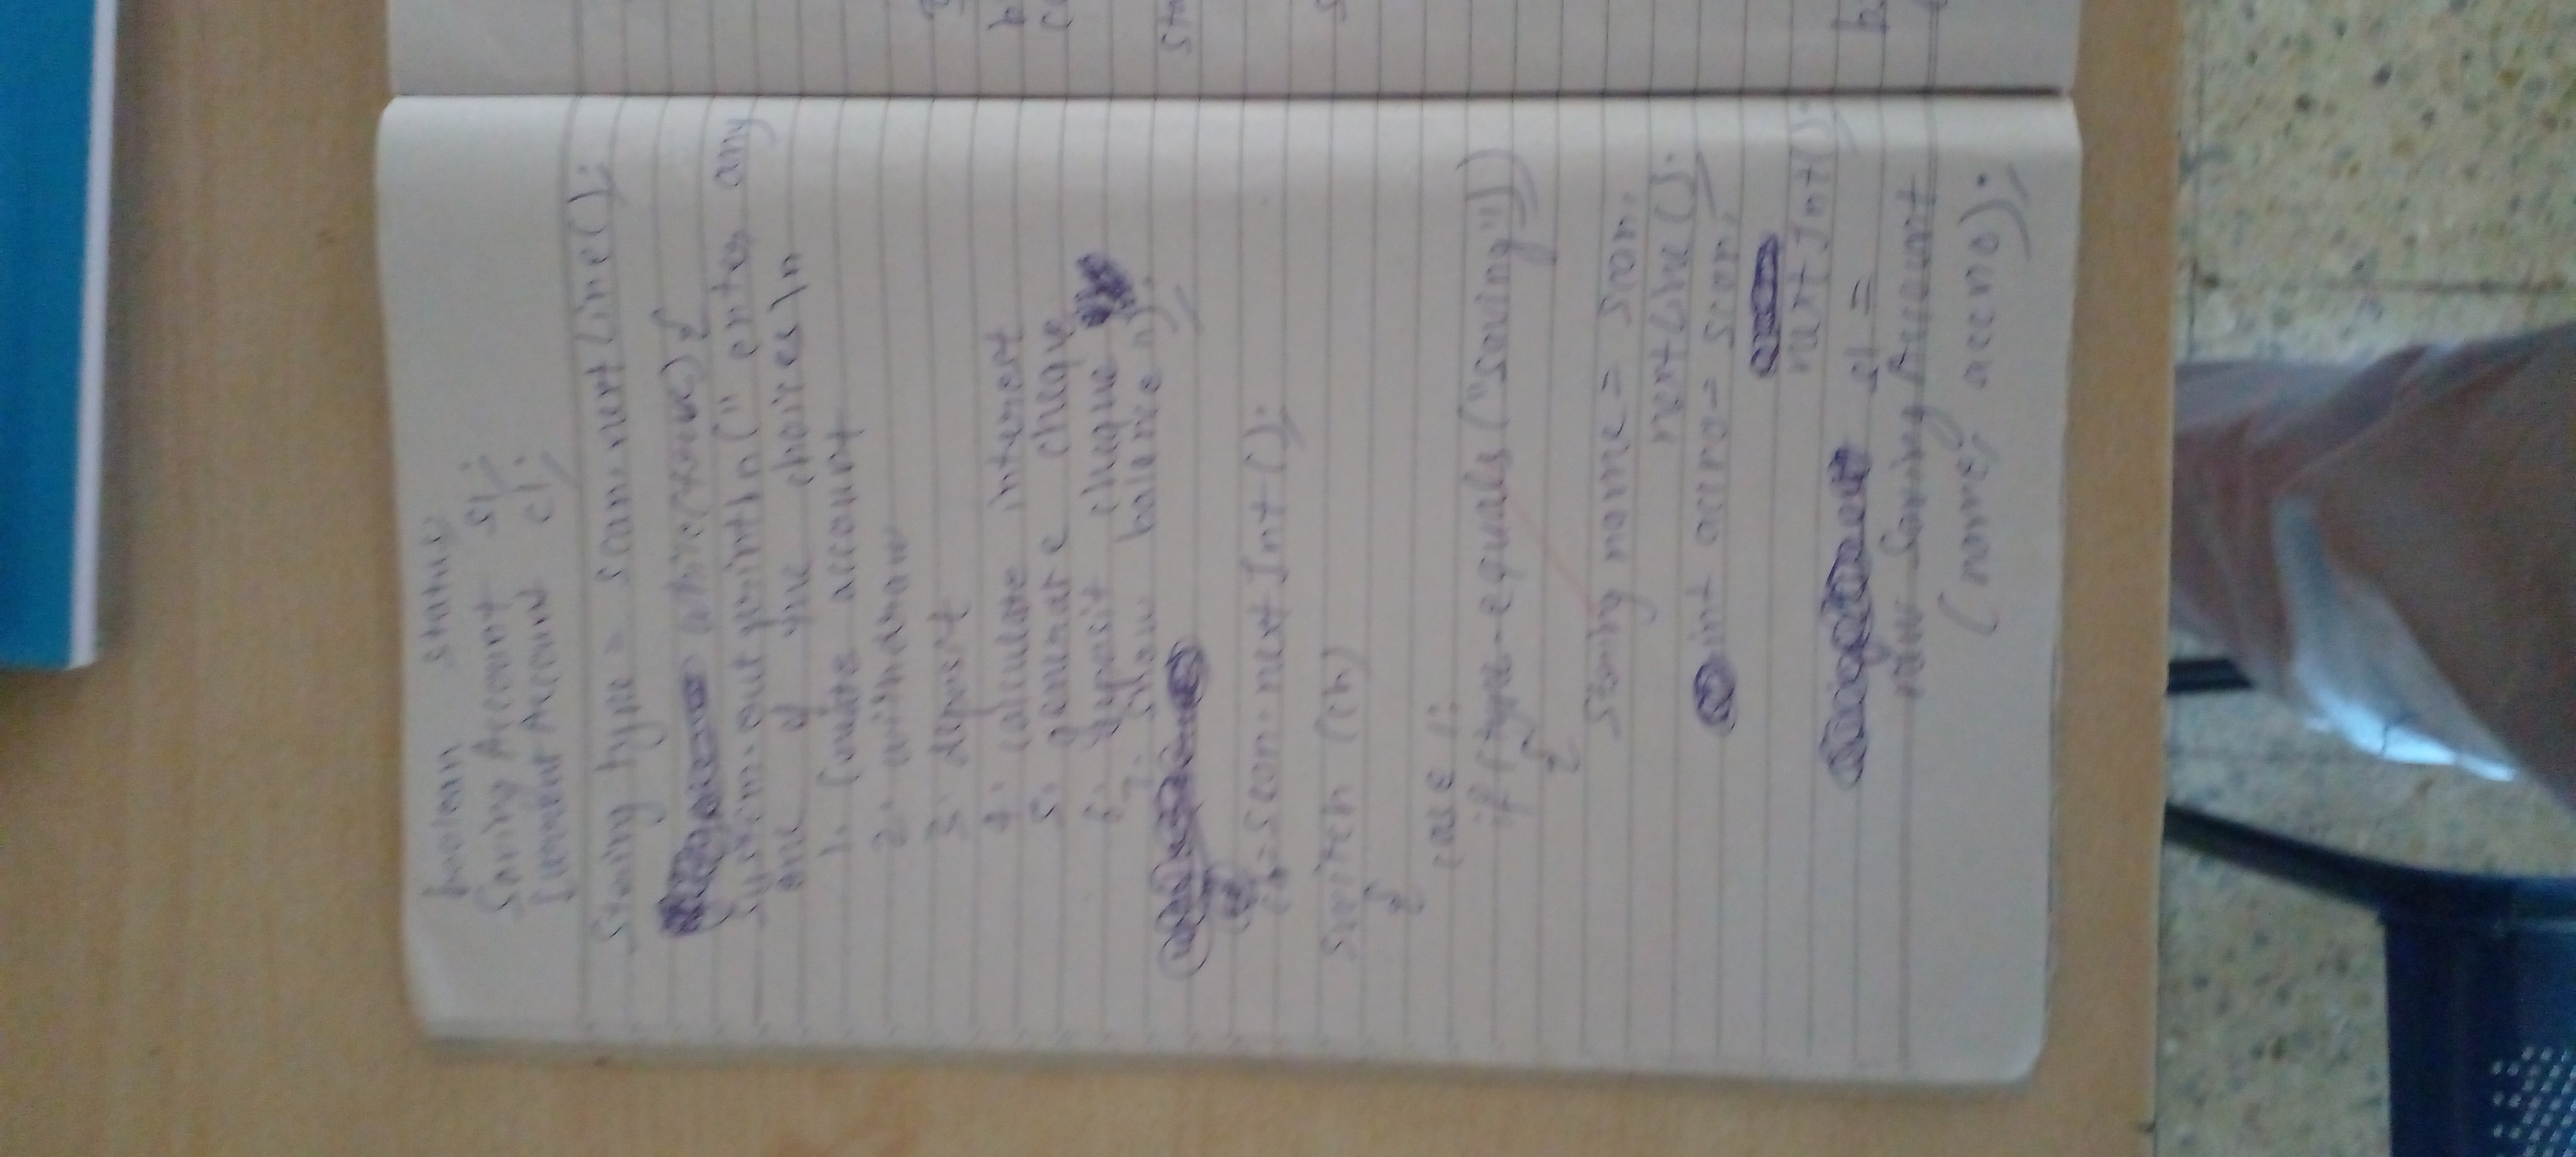 boolean status;
Saving Account s1;
Current Account c1;
String type = scan.nextLine();
while(true) {
System.out.println(" enter any
one of the choices \n
1. Create account
2. withdraw
3. deposit
4. calculate interest
5. generate cheque
6. deposit cheque
7. show balance
ch = scan.nextInt();
switch (ch)
{
case 1:
if (type.equals("saving"))
{
String name = scan.
nextLine();
int accno = scan.
nextInt();
s1 =
new Saving Account
(name, accno);